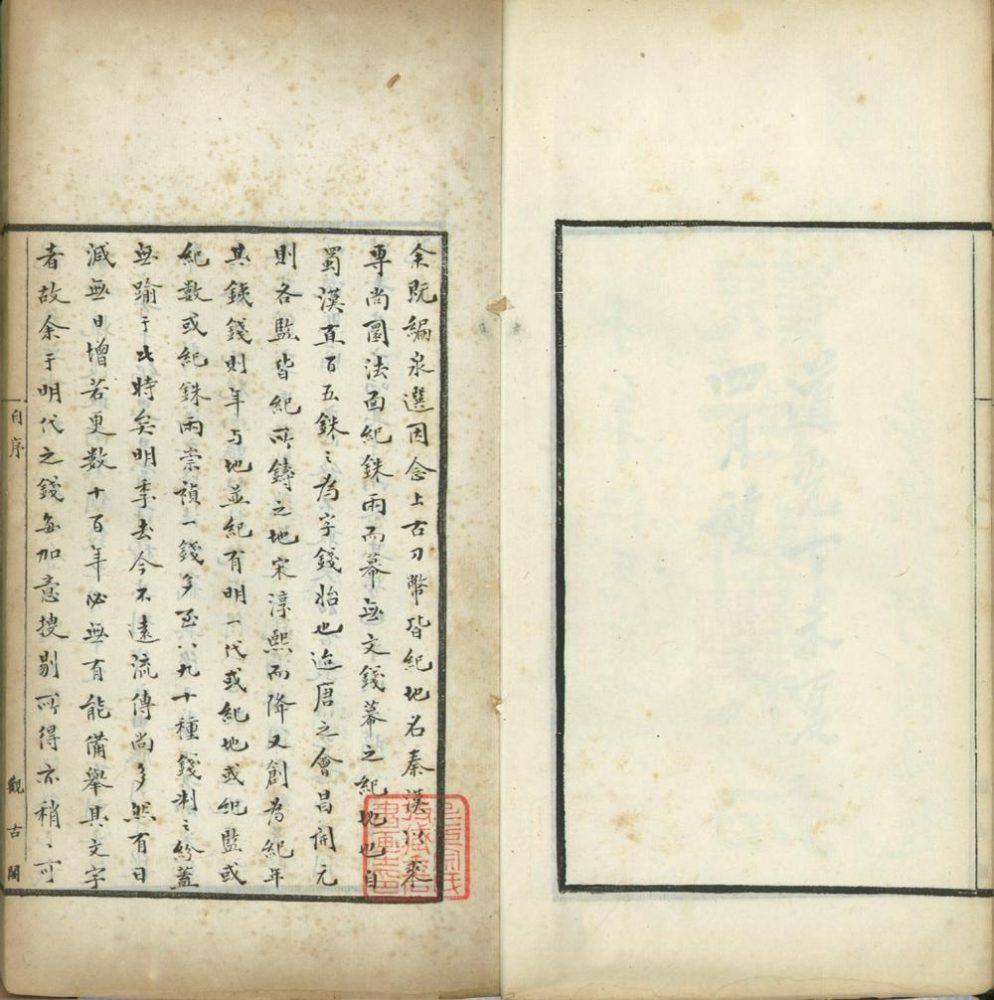 余既編泉選因念上古刀幣皆紀地名秦漢以來
專尚圜法面紀銖兩而幕無文錢幕之紀地也自
蜀漢直百五銖㆓為字錢始也迨唐之會昌開元
則各監皆紀所鑄之地宋淳熙而降又創為紀年
其鐵錢則年与地並紀有明一代或紀地或紀監或
紀數或紀銖兩崇禎一錢多至八九十種錢制之紛蓋
無踰于此時矣明季去今不遠流傳尚多然有日
減無日增若更数十百年必無有能備舉其文字
者故余于明代之錢每加意搜剔所得亦稍〻可
自序
觀古閣